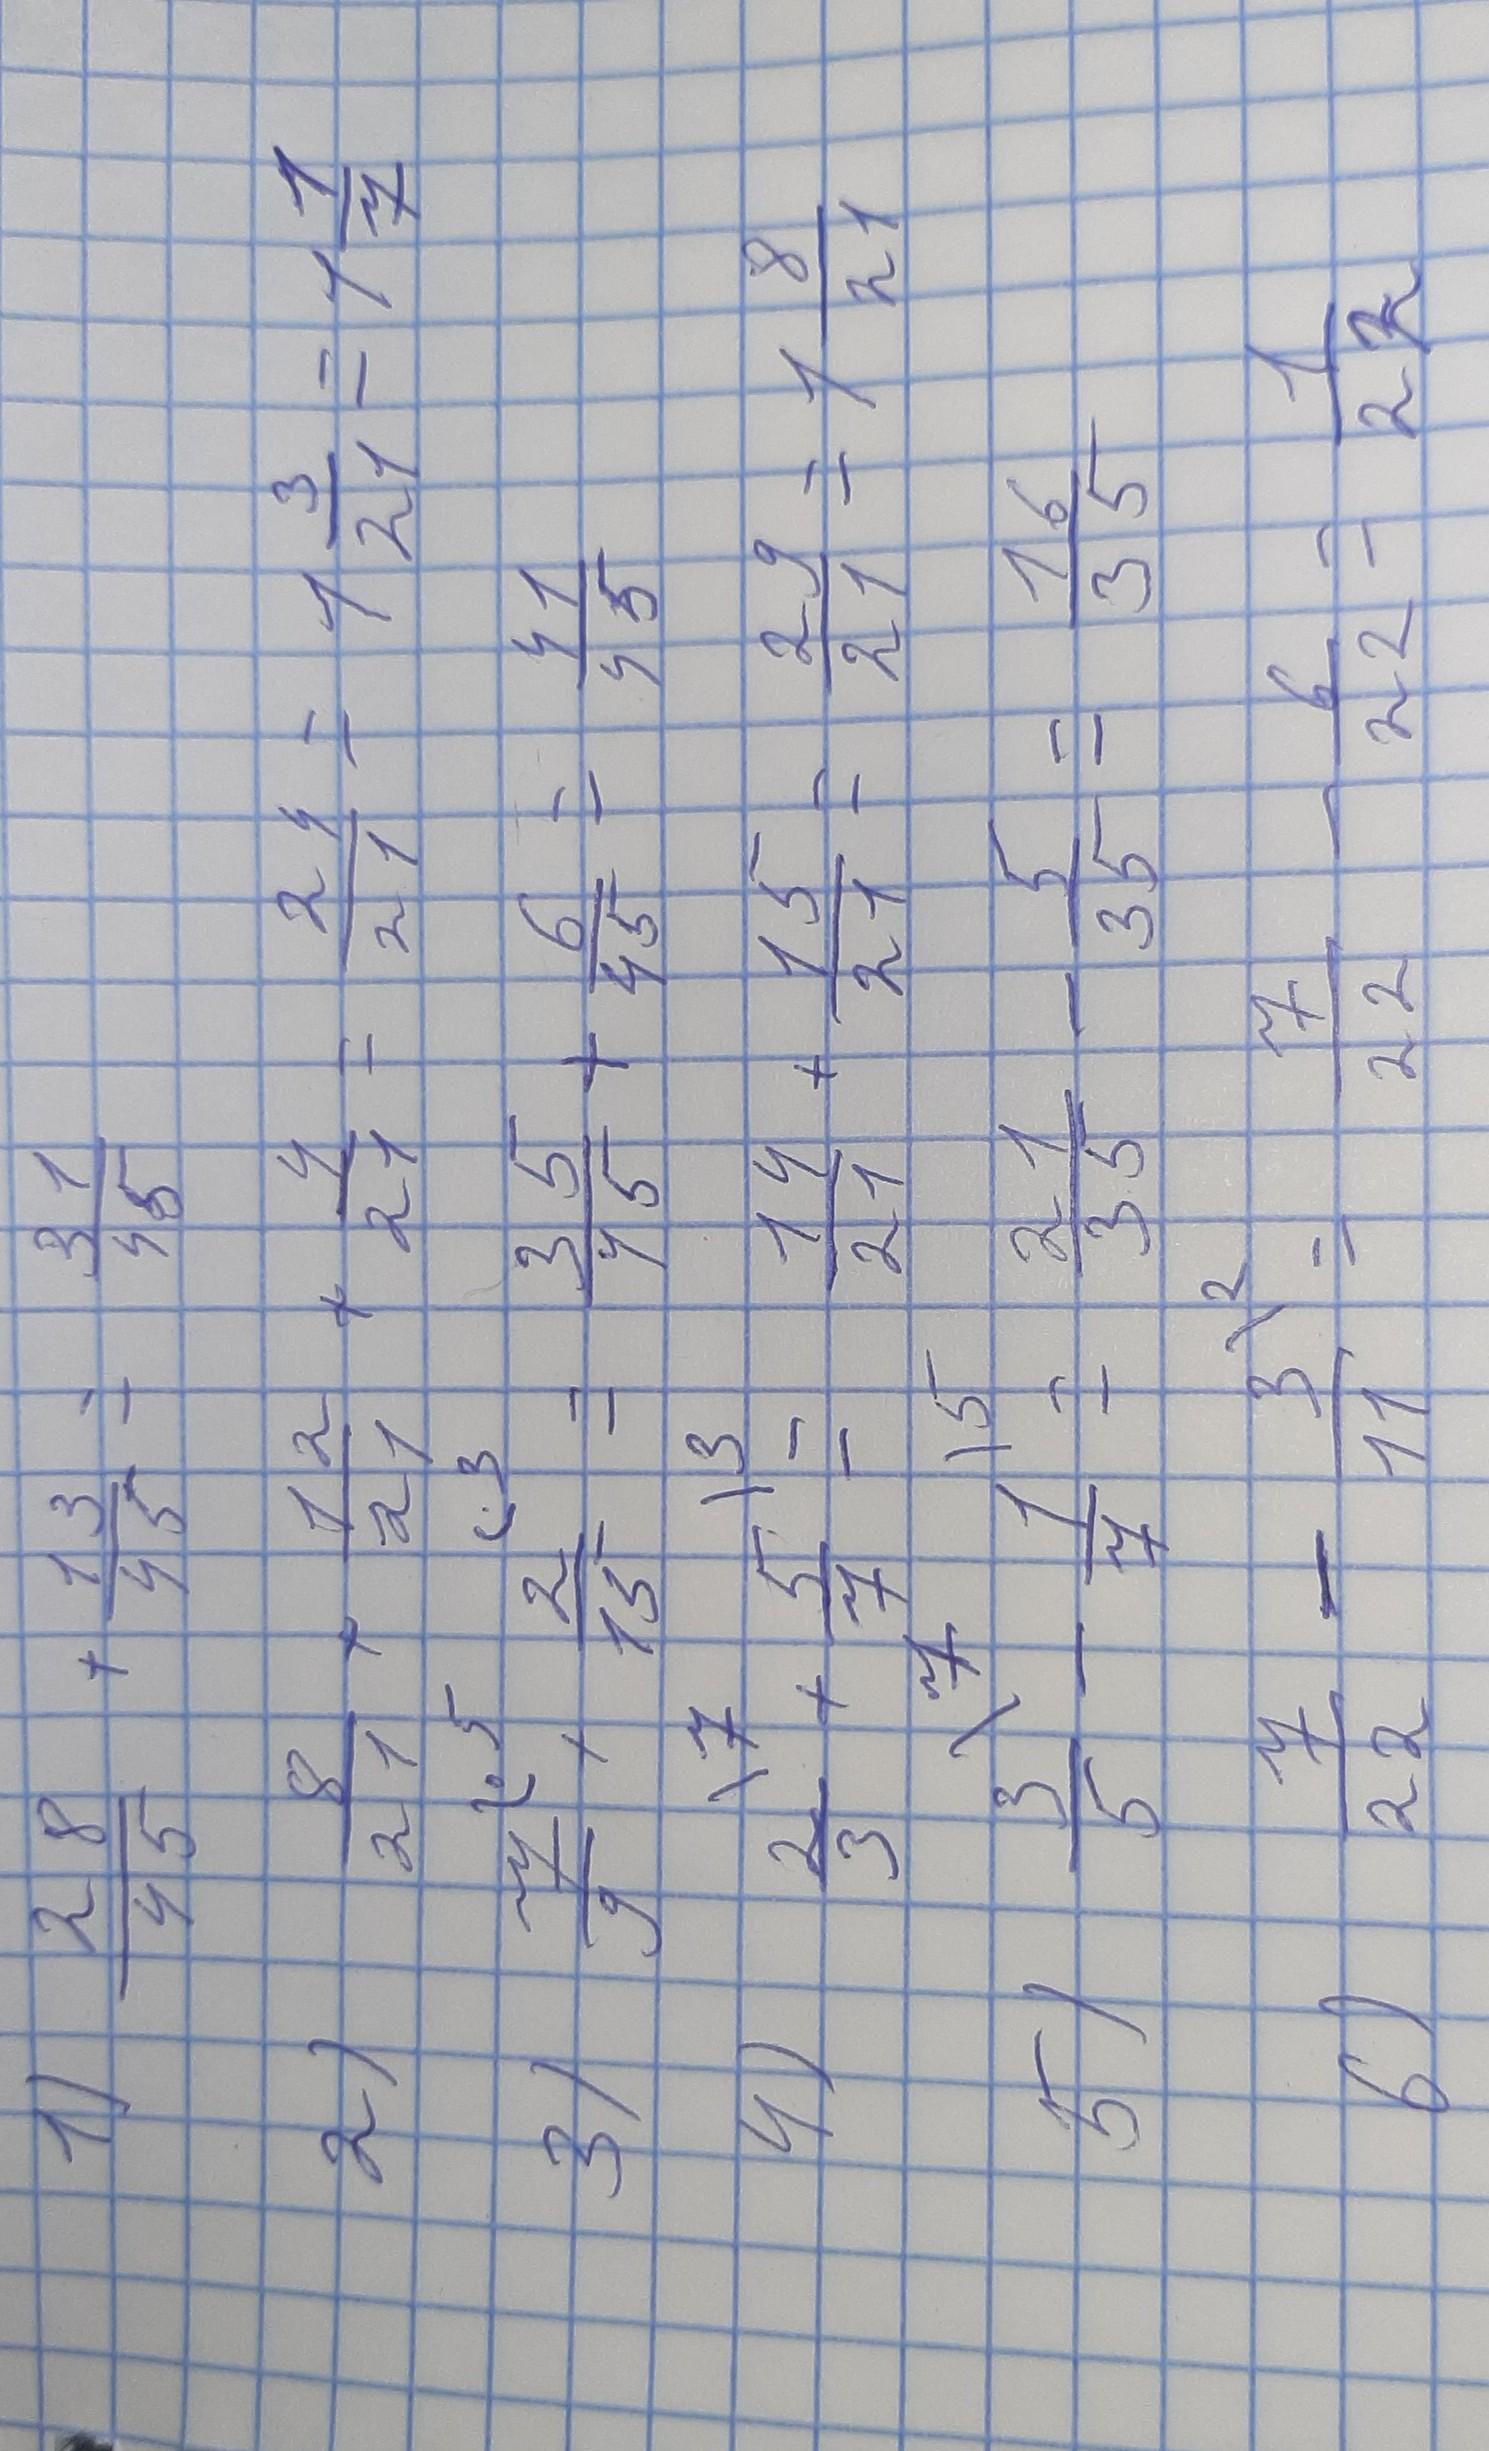 1) 28/45 + 13/45 = 31/45
2) 8/21 + 12/21 + 4/21 = 24/21 = 1 3/21 = 1 1/7
3) 7/9 (·5 + 2/15 (·3 = 35/45 + 6/45 = 41/45
4) 2/3 \7 + 5/7 \3 = 14/21 + 15/21 = 29/21 = 1 8/21
5) 3/5 \7 - 1/7 \5 = 21/35 - 5/35 = 16/35
6) 7/22 - 3/11 \2 = 7/22 - 6/22 = 1/22